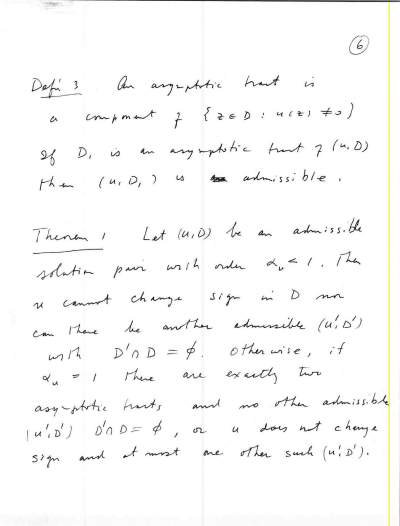 6
Defn 3 An asymptotic tract is
a component of {z∈D : u(z) ≠0}
If D, is an asymptotic tract of (u,D)
then (u,D,) is admissible.
Theorem 1 Let (u,D) be an admissible
solution pair with order αᵤ < 1. Then
u cannot change sign in D nor
can there be another admissible (u',D')
with D'∩D = ϕ. Otherwise, if
αᵤ = 1 there are exactly two
asymptotic tracts and no other admissible
(u',D') D'∩D = ϕ, or u does not change
sign and at most one other such (u',D').